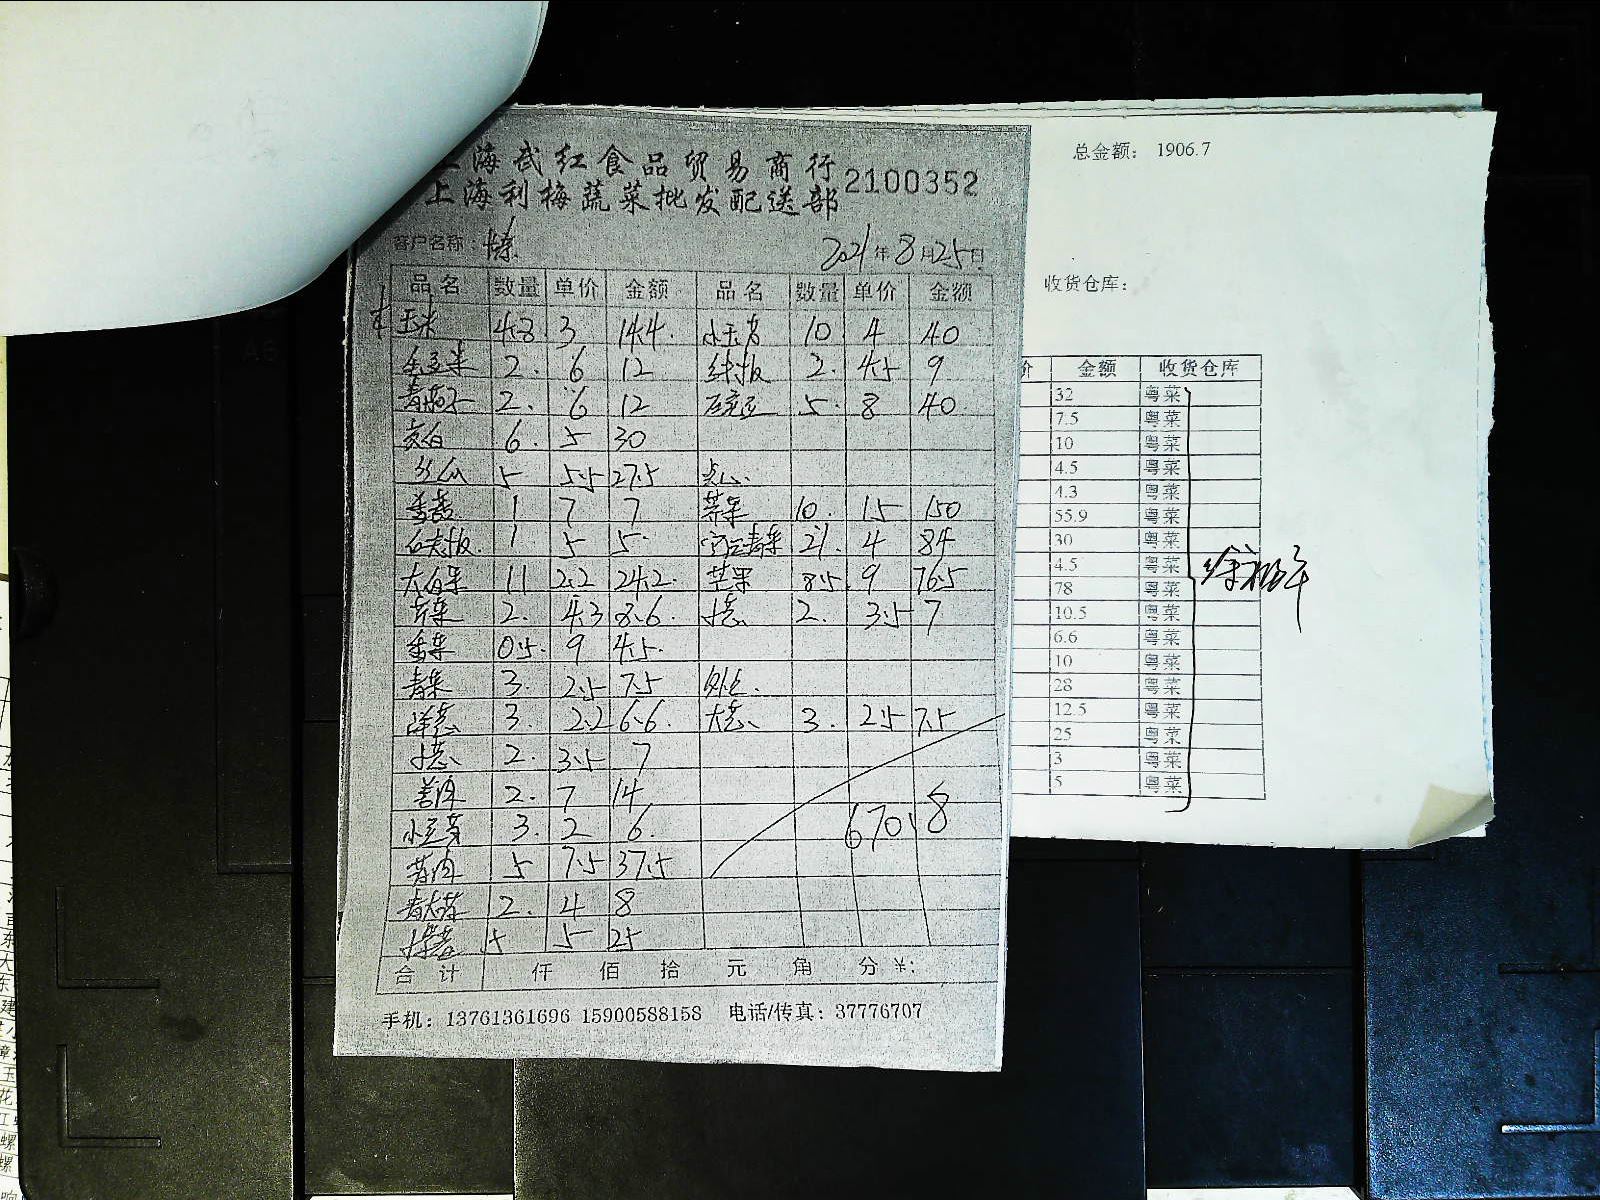 上海武红食品贸易商行
上海利梅蔬菜批发配送部 2100352
客户名称: 2021年8月25日
品名 数量 单价 金额 品名 数量 单价 金额
玉米 4.8 3 14.4 小玉芳 10 4 40
2. 6 12 2. 4.5 9
青茄子 2. 6 12 5. 8 40
茭白 6. 5 30
丝瓜 5 5.5 27.5 点心
1 7 7 芹菜 10. 15 150
1 5 5 青菜 21. 4 84
大白菜 11 2.2 24.2 芒果 8.5 9 76.5
芹菜 2. 4.3 8.6 小葱 2. 3.5 7
香菜 0.5 9 4.5
青菜 3. 2.5 7.5
洋葱 3. 2.2 6.6 大葱 3. 2.5 7.5
小葱 2. 3.5 7
姜肉 2. 7 14
小豆芽 3. 2 6.
5 7.5 37.5
2. 4 8
5 5 25
670.8
合计 仟 佰 拾 元 角 分 ¥:
手机: 13761361696 15900588158 电话/传真: 37776707
总金额: 1906.7
收货仓库:
价 金额 收货仓库
32 粤菜
7.5 粤菜
10 粤菜
4.5 粤菜
4.3 粤菜
55.9 粤菜
30 粤菜
4.5 粤菜
78 粤菜
10.5 粤菜
6.6 粤菜
10 粤菜
28 粤菜
12.5 粤菜
25 粤菜
3 粤菜
5 粤菜